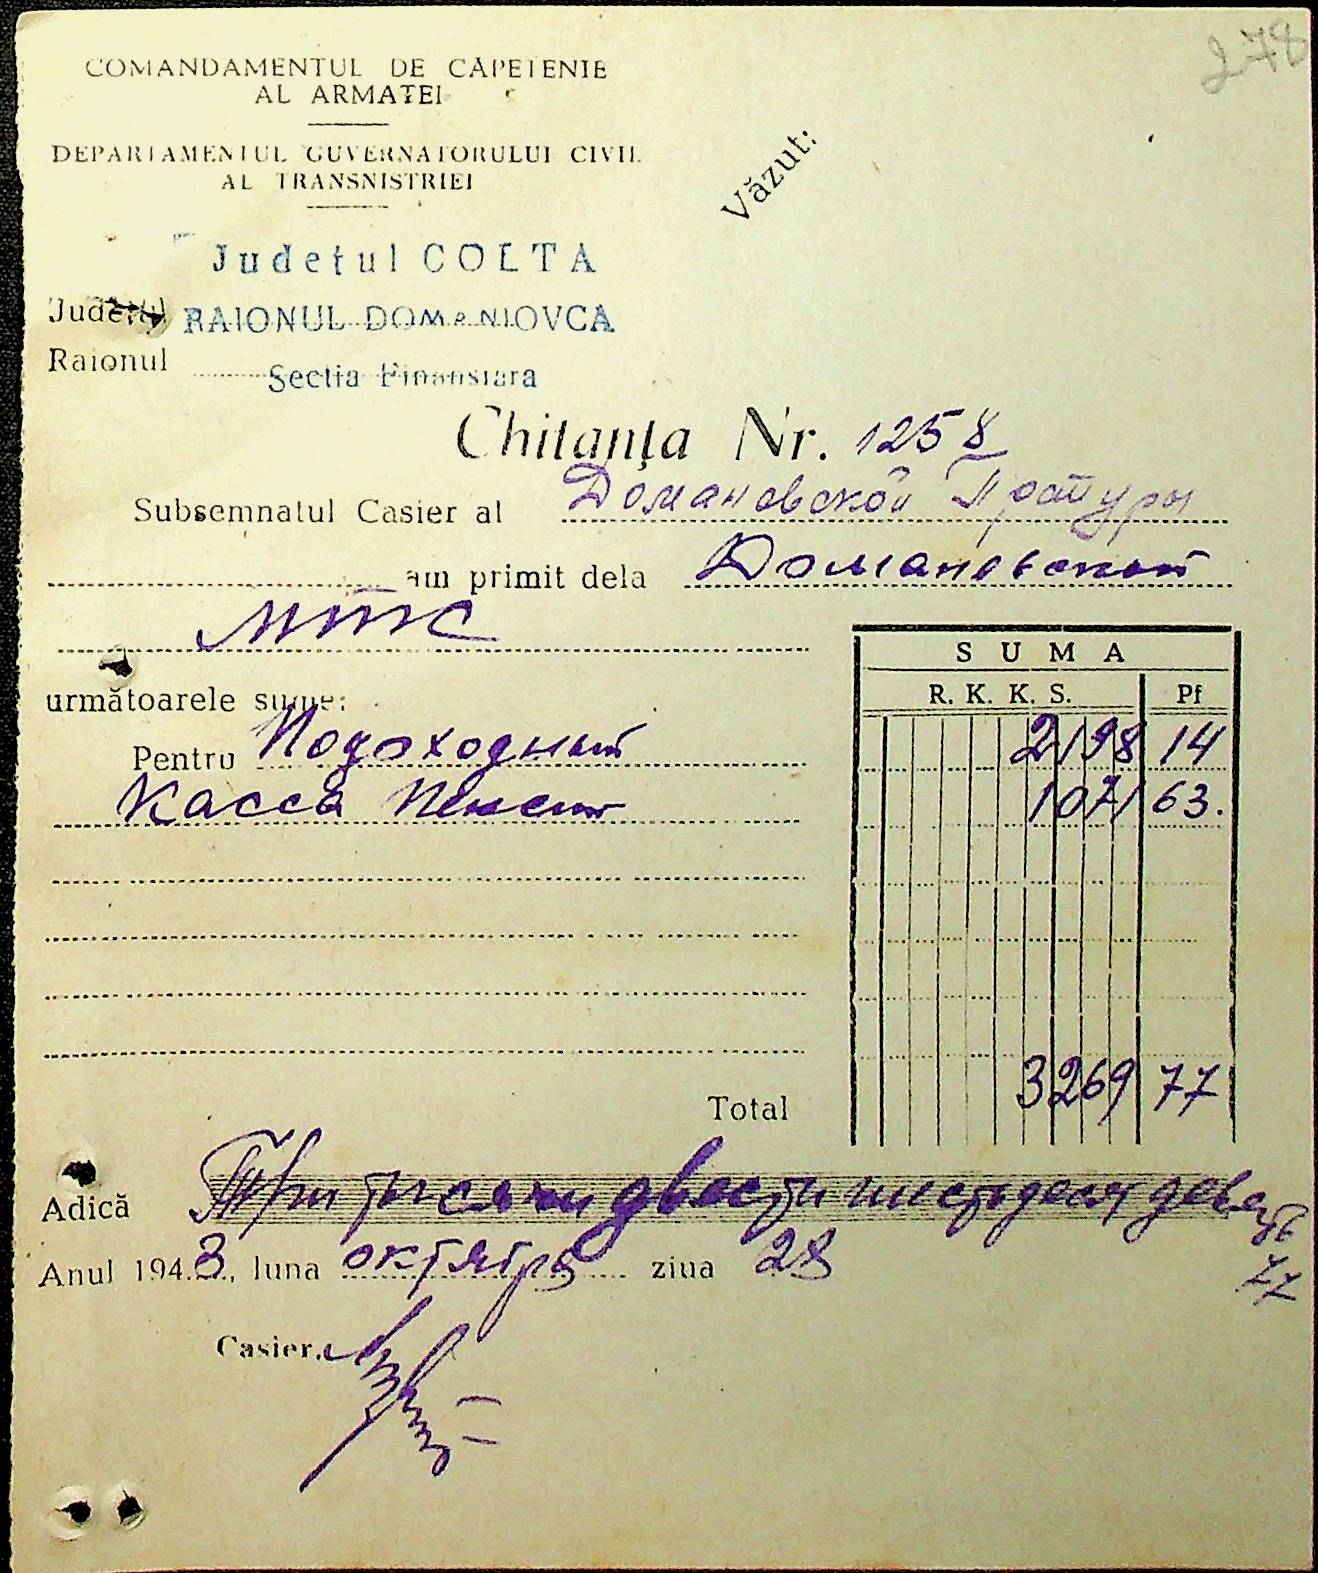 278
COMANDAMENTUL DE CAPETENIE
AL ARMATEI
DEPARTAMENTUL GUVERNATORULUI CIVIL
AL TRANSNISTRIEI
Văzut:
Judetul COLTA
Judetul RAIONUL DOMANIOVCA
Raionul
Sectia Finansiara
Chitanţa Nr. 1258
Subsemnatul Casier al Домановской Претуры
am primit dela Домановской
МТС
SUMA
următoarele sume:
R. K. K. S. Pf
Pentru Подоходный 2198 14
Касса Пенсий 1071 63.
Total 3269 77
Adică Три тысячи двести шестьдесят девять
77
Anul 1943, luna октября ziua 28
Casier,